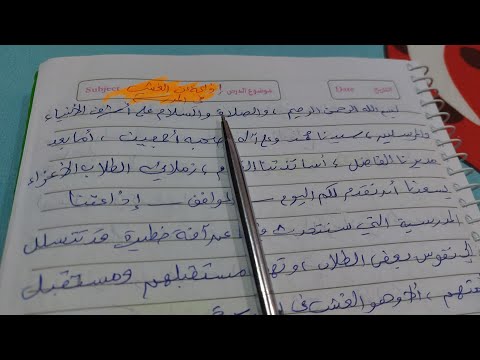 Subject إذاعة عن الغش موضوع الدرس Date التاريخ
بسم الله الرحمن الرحيم، والصلاة والسلام على أشرف الأنبياء
والمرسلين، سيدنا محمد وعلى آله وصحبه أجمعين، أما بعد
مديرنا الفاضل، أساتذتنا، زملائي الطلاب الأعزاء
يسعدنا أن نقدم لكم اليوم الموافق إذاعتنا
المدرسية التي سنتحدث عن آفة خطيرة قد تتسلل
إلى نفوس بعض الطلاب، مستقبلهم ومستقبل
ألا وهو الغش في